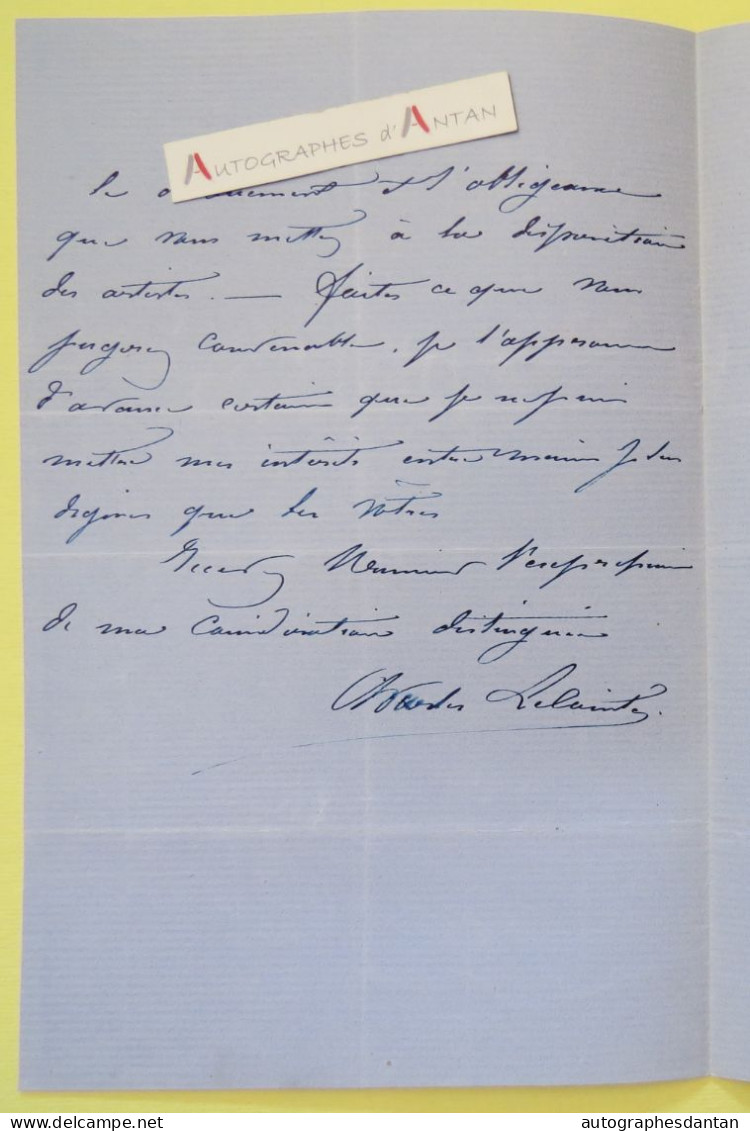 AUTOGRAPHES d'ANTAN
le et l'obligeance
que vous mettez à la disposition
des artistes. — Faites ce que vous
jugerez convenable, je l'approuve
d'avance certain que je ne puis
mettre mes intérêts entre mains plus
dignes que les vôtres
Recevez Monsieur l'expression
de ma considération distinguée
Charles
delcampe.net
autographesdantan